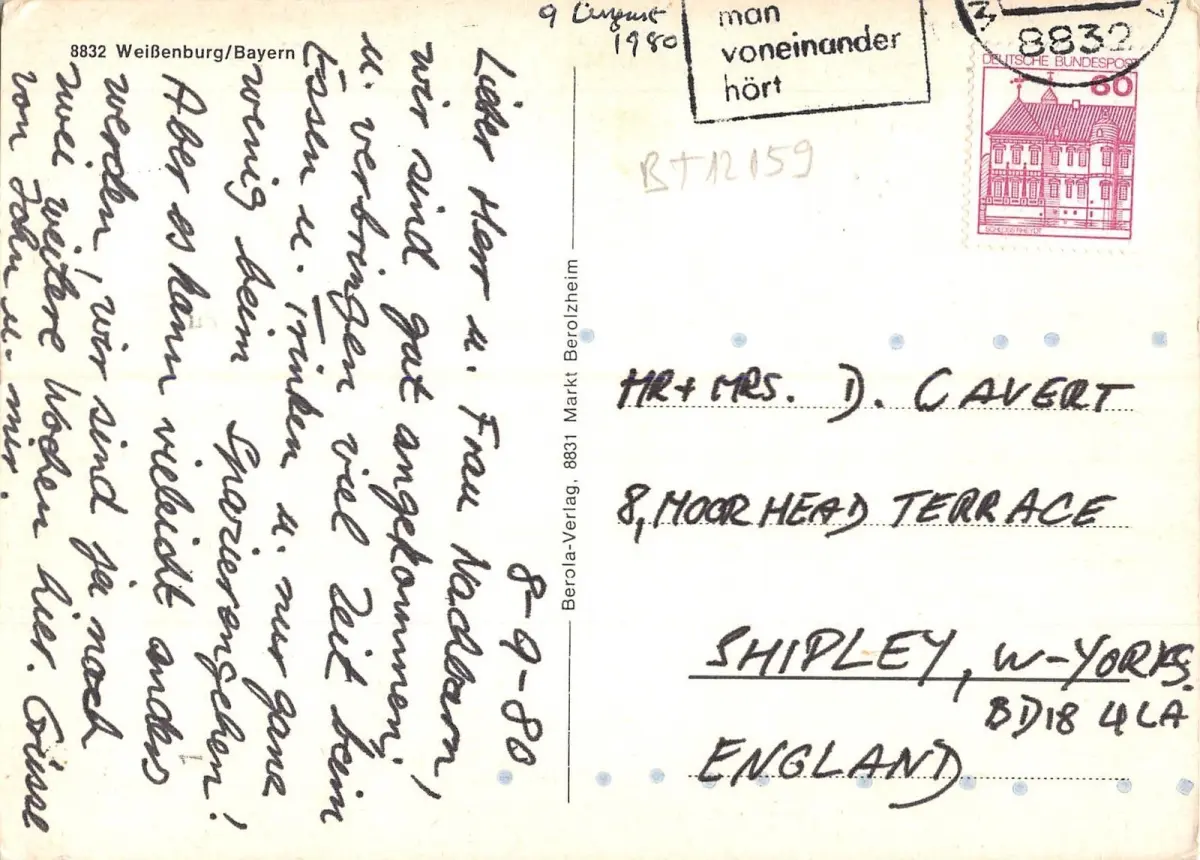 8832 Weißenburg/Bayern
8-9-80
Lieber Herr u. Frau Nachbarn,
wir sind gut angekommen,
u. verbringen viel Zeit beim
Essen u. Trinken u. nur ganz
wenig beim Spazierengehen!
Aber es kann vieleicht anders
werden, wir sind ja noch
zwei weitere Wochen hier. Grüsse
von John u. mir.
Berola-Verlag, 8831 Markt Berolzheim
9 August
1980
man
voneinander
hört
8832
DEUTSCHE BUNDESPOST
60
SCHLOSS RHEYDT
BT12159
MR + MRS. D. CAVERT
8, MOORHEAD TERRACE
SHIPLEY, W-YORKS.
BD18 4LA
ENGLAND